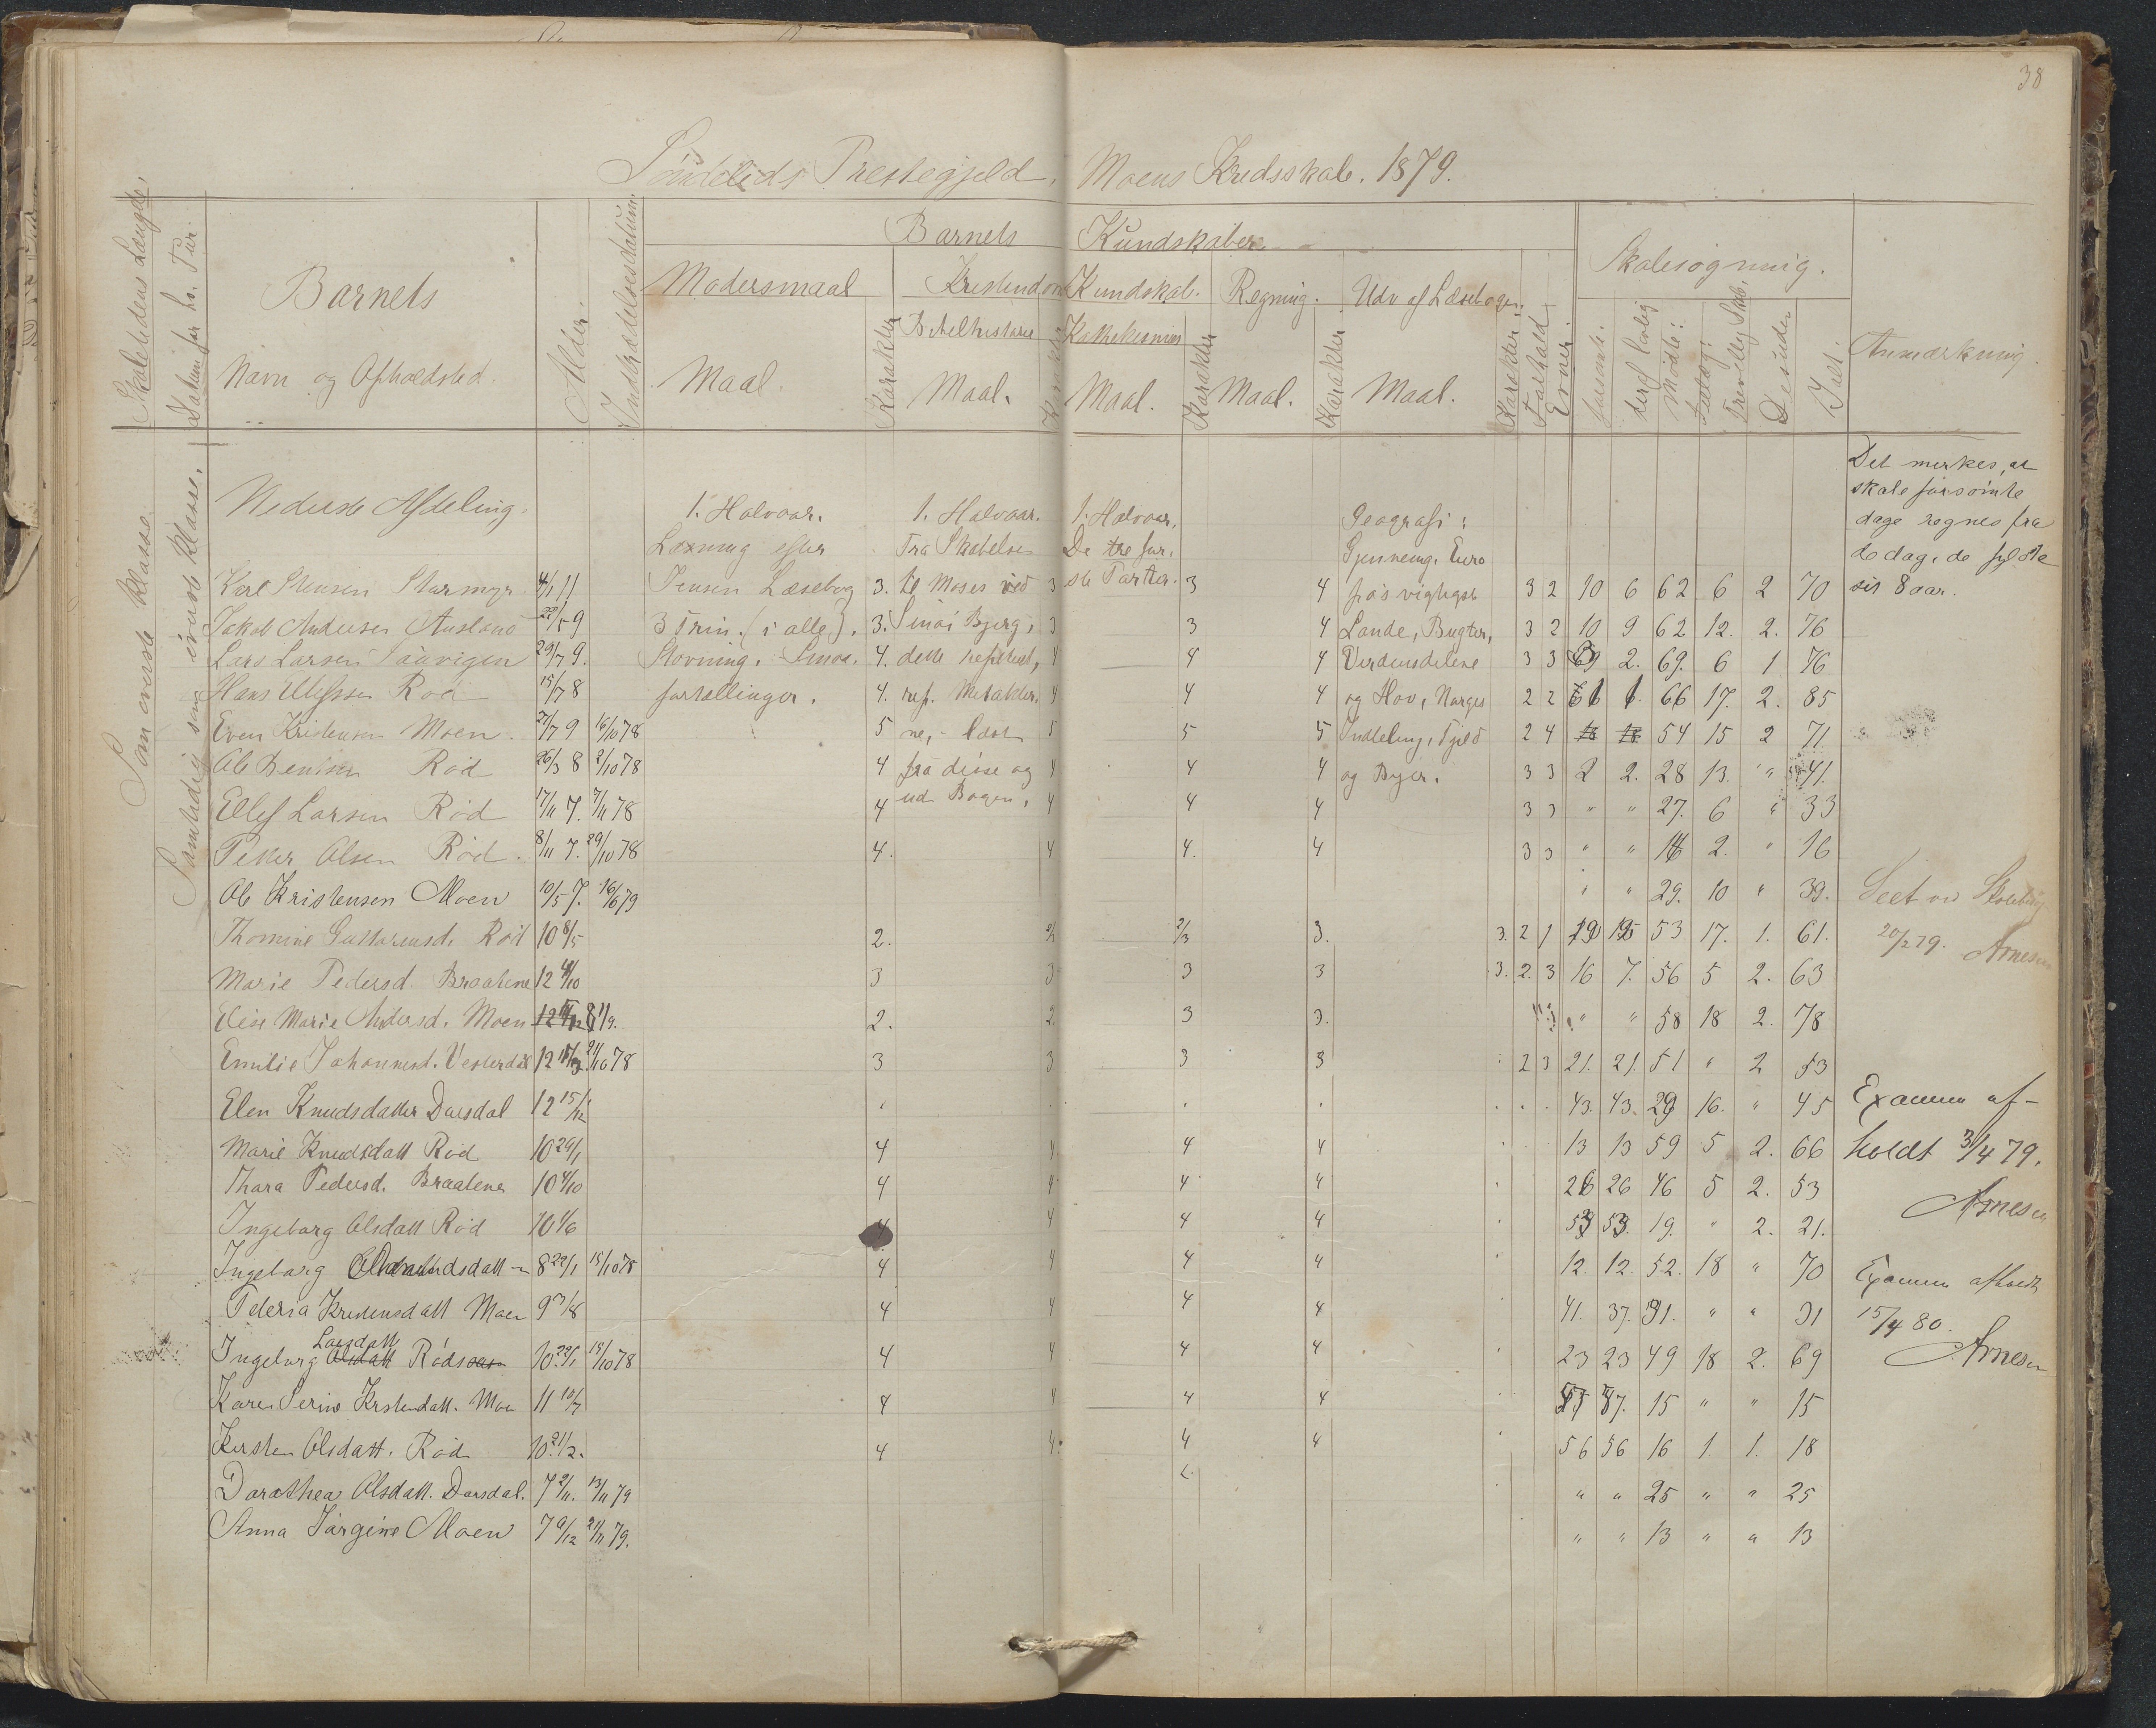 38
Søndeleds Prestegjeld, Moens Kredsskole. 1879.
Skoletidens Længde.
Datum for hv. Tur.
Barnets
Navn og Opholdsted.
Alder.
Indtrædelsesdatum.
Barnets Kundskaber
Modersmaal
Maal.
Karakter
Kristendoms Kundskab.
Bibelhistorie
Maal.
Karakter
Katekismus
Maal.
Karakter
Regning.
Maal.
Karakter
Udv af Læsebogen.
Maal.
Karakter
Forhold
Evner.
Skolesøgning.
forsømt.
deraf lovlig
Mødte:
Desuden
Ialt.
Anmærkning.
Som øverste klasse.
Samtidig som øverste klasse.
Nederste Afdeling.
1. Halvaar. 1. Halvaar. 1. Halvaar. Geografi:
Læsning efter Fra Skabelsen De tre før- Gjennemg. Euro
Karl Stensen Starmyr 4/1 11 Jensen Læsebog 3. til Moses ved 3 ste Parter. 3 4 pas vigtigste 3 2 10 6 62 6 2 70
Jakob Andersen Ausland 22/5 9 3 Trin. (i alle). 3. Sinai Bjerg, 3 3 4 Lande, Bugter, 3 2 10 9 62 12. 2. 76
Lars Larsen 29/7 9. Skrivning. Smaa 4. dette repeteret, 4 4 4 Verdensdelene 3 3 2. 69. 6 1 76
Hans Ulefssen Rød 15/7 8 fortællinger. 4. 4 4 4 og Hav, Norges 2 2 1. 66 17. 2. 85
Even Kristensen Moen. 27/7 9 16/10 78 5 5 5 5 Inddeling, Fjeld 2 4 54 15 2 71
Ole Bentsen Rød 26/3 8 2/10 78 4 fra disse og 4 4 4 og Byer. 3 3 2 2. 28 13. " 41.
Ellef Larsen Rød 17/11 7. 7/11 78 4 ud Bogen, 4 4 4 3 3 " " 27. 6 " 33
Peter Olsen Rød. 8/11 7. 29/10 78 4. 4 4. 4 3 3 " " 14 2. " 16
Ole Kristensen Moen 10/5 7. 16/6 79 " " 29. 10 " 39.
Thomine Gustavensd. Rød 10 8/5 2. 2 2/3 3. 3. 2 1 19 15 53 17. 1. 61.
Marie Pedersd. Braatene 12 4/10 3 3 3 3 3. 2. 3 16 7. 56 5 2. 63
Elise Marie Andersd. Moen 2. 2 3 3. " " 58 18 2. 78
Emilie Johannesd. Vesterdal 12 21/10 78 3 3 3 3 2 3 21. 21. 51 " 2 53
Elen Knudsdatter Darsdal 12 15/12 43. 43. 29 16. " 45
Marie Knudsdatt Rød 10 29/1 4 4 4 4 13 13 59 5 2. 66
Thara Pedersd. Braatene 10 4/10 4 4 4 4 26 26 46 5 2. 53
Ingeborg Olsdatt Rød 10 1/6 4 4 4 4 53 53. 19. " 2. 21.
Ingeborg 8 22/1 15/10 78 4 4 4 4 12. 12. 52. 18 " 70
Pederia Kristensdatt Moen 9 3/8 4 4 4 4 41. 37. 31. " " 31
Ingeborg Larsdatt Olsdatt Rød 10. 22/1 15/10 78 4 4 4 4 23 23 49 18 2. 69
Karen Serine Krstensdatt. Moen 11 10/7 4 4 4 4 57 57. 15 " " 15
Kersten Olsdatt. Rød 10. 21/2. 4 4. 4 4 56 56 16 1. 1. 18
Dorothea Olsdatt. Darsdal. 7 2/11. 13/11 79 " " 25 " " 25
Anna Jørgine Moen 7 9/12 21/11 79. " " 13 " " 13
Det merkes, at
skole forsømte
dage regnes fra
de dag, de fyldte
sit 8 aar.
Seet ved Skolebesøg
20/2 79. Arnesen
Examen af-
holdt 3/4 79.
Arnesen
Examen afholdt
15/4 80.
Arnesen